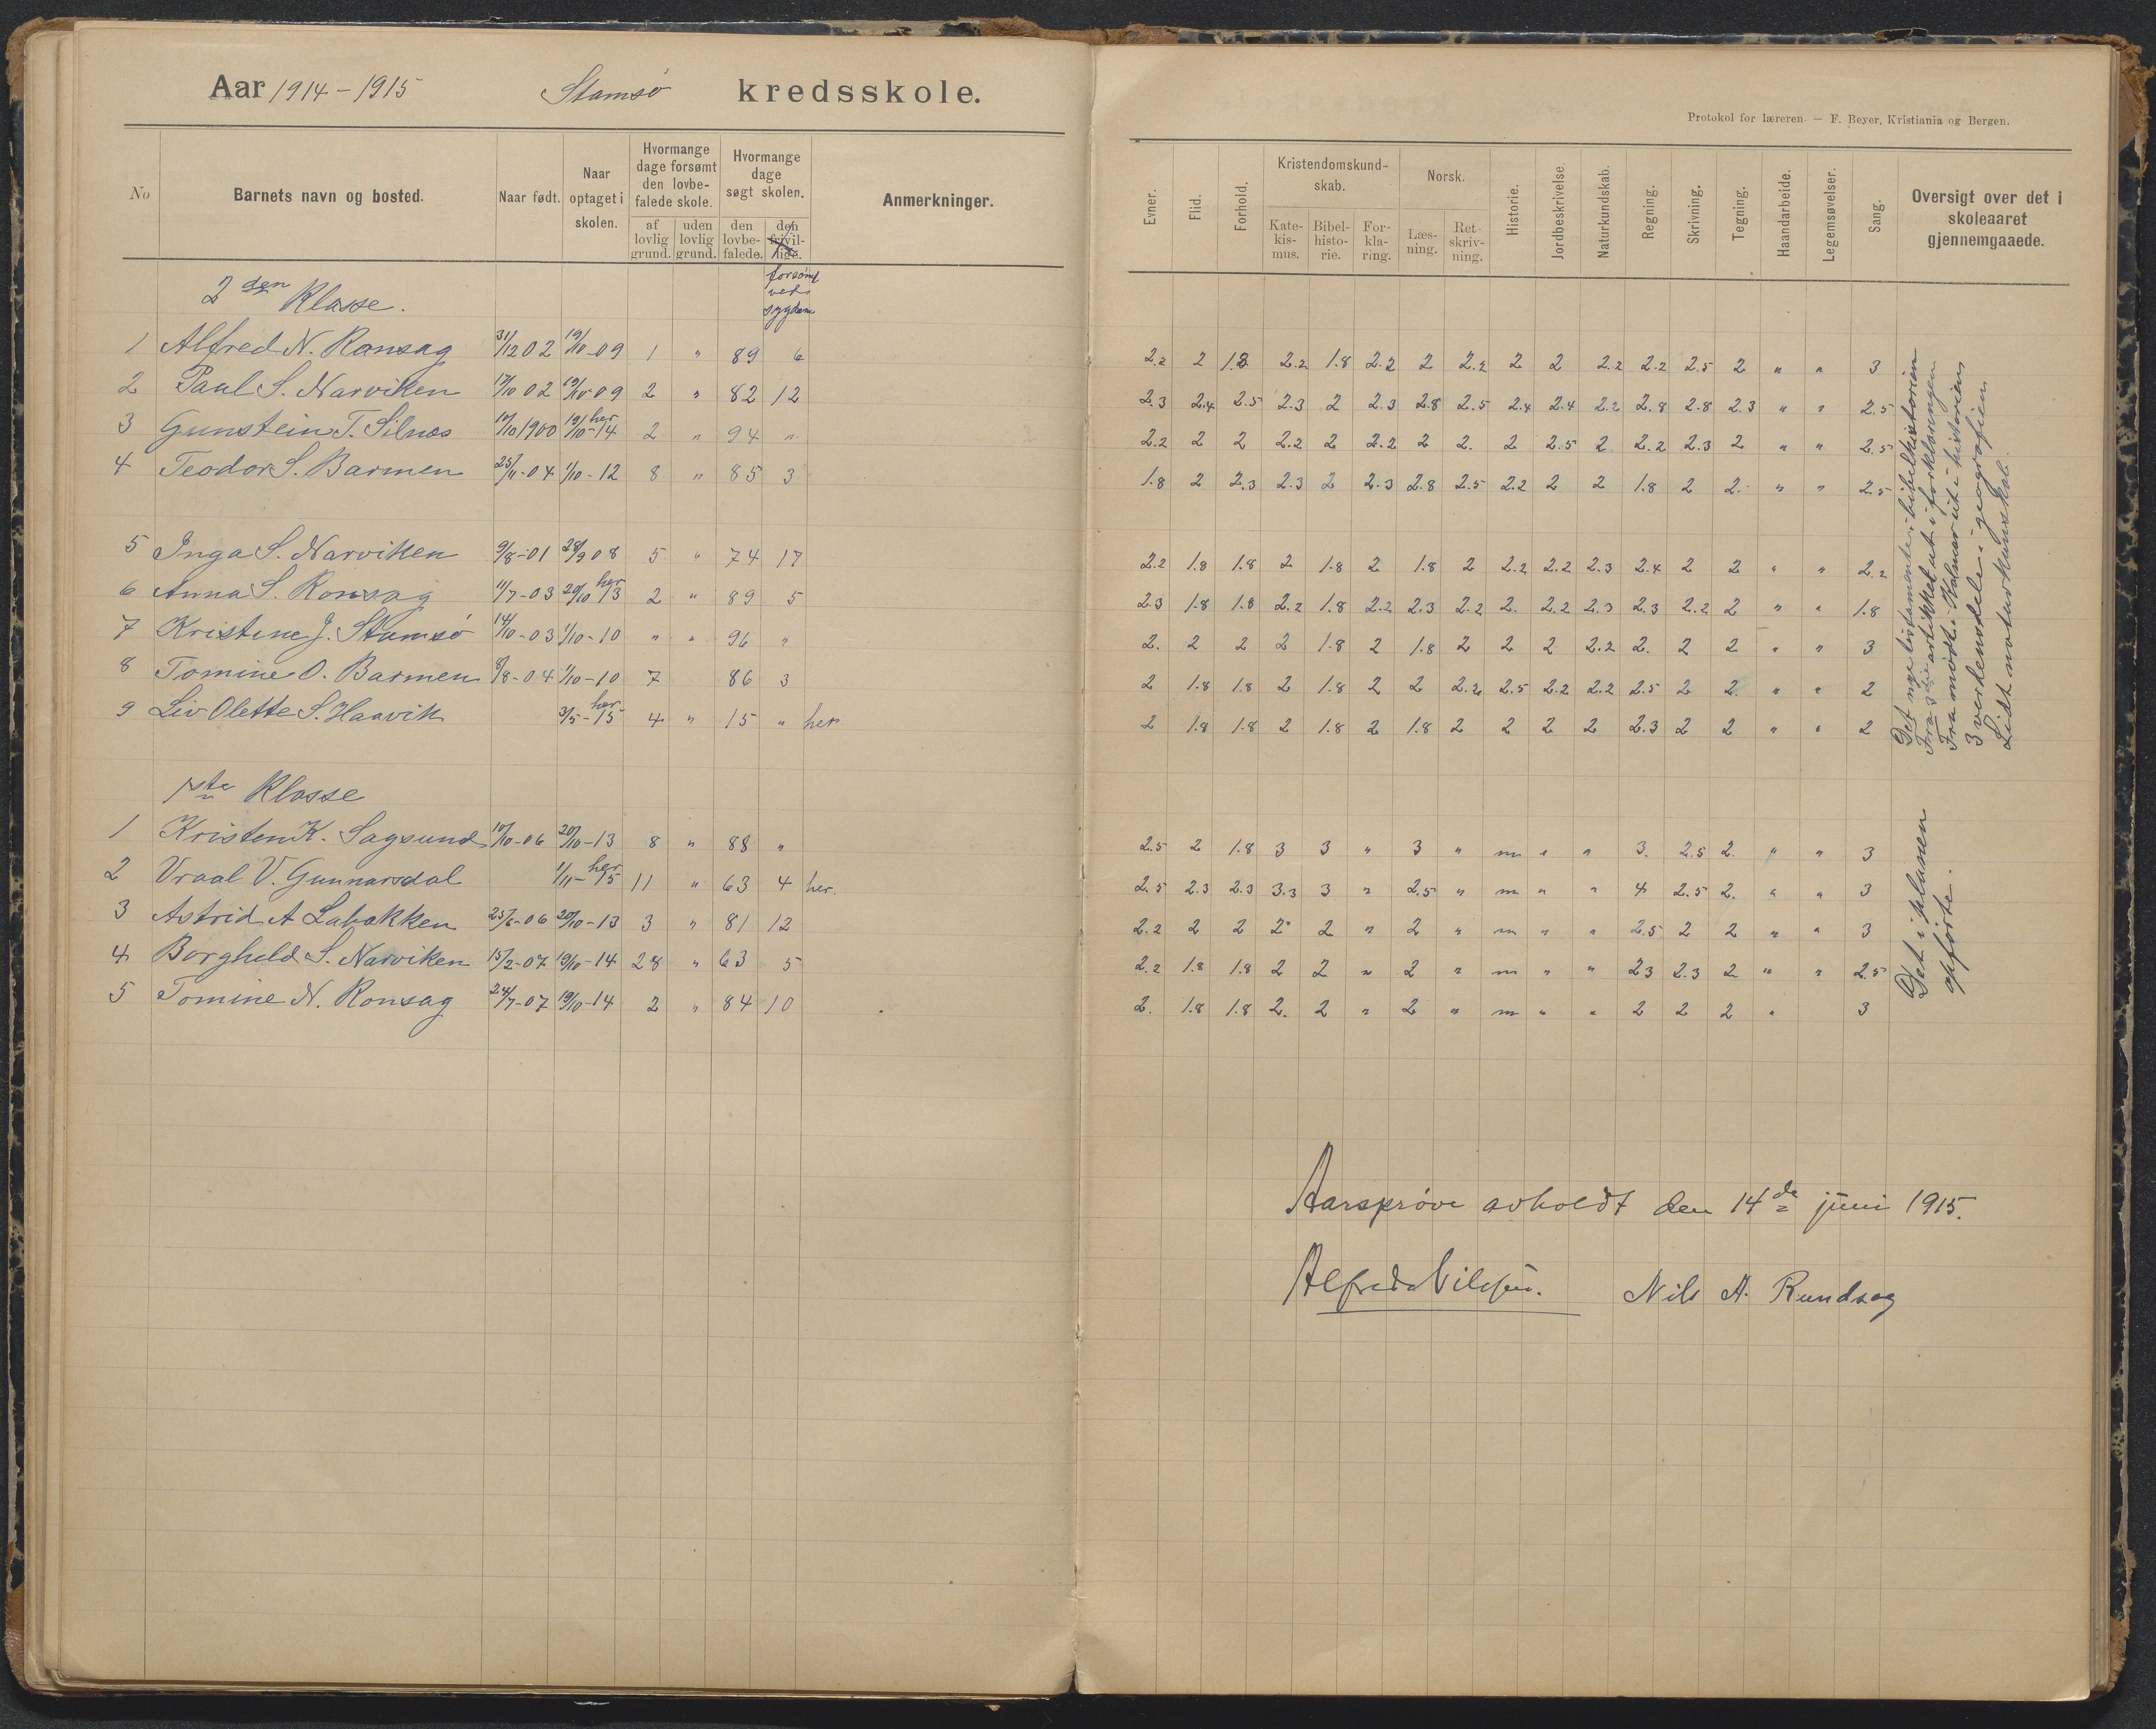 Aar 1914-1915 Stamsø kredsskole.
No
Barnets navn og bosted.
Naar født.
Naar optaget i skolen.
Hvormange dage forsømt den lovbefalede skole.
af lovlig grund.
uden lovlig grund.
Hvormange dage søgt skolen.
den lovbefalede.
den frivillige.
forsømt ved sygdom
Anmerkninger.
2den Klasse.
1 Alfred N. Ronsag 31/12 02 19/10-09 1 " 89 6
2 Paul S. Narviken 17/10 02 19/10-09 2 " 82 12
3 Gunstein T. Silnæs 10/10 1900 19/10-14 her 2 " 94 "
4 Teodor S. Barmen 25/11-04 1/10-12 8 " 85 3
5 Inga S. Narviken 9/8-01 28/9 08 5 " 74 17
6 Anna S. Ronsag 11/7-03 20/10 13 her 2 " 89 5
7 Kristine J. Stamsø 14/10-03 1/10-10 " " 96 "
8 Tomine O. Barmen 8/8-04 1/10-10 7 86 3
9 Liv Olette S. Haavik 3/5-15 her 4 " 15 " her
1ste Klasse
1 Kristen K. Sagsund 10/10-06 20/10-13 8 " 88 "
2 Vraal V. Gunnarsdal 1/11-15 her 11 " 63 4 her.
3 Astrid A Labakken 25/6-06 20/10-13 3 " 81 12
4 Borghild S. Narviken 15/2-07 19/10-14 28 " 63 5
5 Tomine N. Ronsag 24/7-07 19/10-14 2 " 84 10
Protokol for læreren. — F. Beyer, Kristiania og Bergen.
Evner.
Flid.
Forhold.
Kristendomskundskab.
Katekismus.
Bibelhistorie.
Forklaring.
Norsk.
Læsning.
Retskrivning.
Historie.
Jordbeskrivelse.
Naturkundskab.
Regning.
Skrivning.
Tegning.
Haandarbeide.
Legemsøvelser.
Sang.
Oversigt over det i skoleaaret gjennemgaaede.
2.2 2 1.8 2.2 1.8 2.2 2 2.2 2 2 2.2 2.2 2.5 2 " " 3
2.3 2.4 2.5 2.3 2 2.3 2.8 2.5 2.4 2.4 2.2 2.8 2.8 2.3 " " 2.5
2.2 2 2 2.2 2 2.2 2 2. 2 2.5 2 2.2 2.3 2 " " 2.5
1.8 2 2.3 2.3 2 2.3 2.8 2.5 2.2 2 2 1.8 2 2. " " 2.5
2.2 1.8 1.8 2 1.8 2 1.8 2 2.2 2.2 2.3 2.4 2 2 " " 2.2
2.3 1.8 1.8 2.2 1.8 2.2 2.3 2.2 2. 2.2 2.3 2.3 2.2 2 " " 1.8
2. 2 2 2 1.8 2 1.8 2 2 2 2.2 2. 2 2 " " 3
2 1.8 1.8 2 1.8 2 2 2.2 2.5 2.2 2.2 2.5 2 2. " " 2
2 1.8 1.8 2 1.8 2 1.8 2 2 2 2 2.3 2 2 " " 2
Det nye testamente i bibelhistorien
Fra 3die artikkel ut i forklaringen
Fra mødet i Kalmar ut i historien
3 verdensdele i geografien
Lidt naturkunskab.
2.5 2 1.8 3 3 " 3 " m " " 3. 2.5 2. " " 3
2.5 2.3 2.3 3.3 3 " 2.5 " m " " 4 2.5 2. " " 3
2.2 2 2 2 2 " 2 " m " " 2.5 2 2 " " 3
2.2 1.8 1.8 2 2 " 2 " m " " 2.3 2.3 2 " " 2.5
2. 1.8 1.8 2. 2 " 2 " m " " 2 2 2 " 3
Det i planen
opførte.
Aarsprøve avholdt den 14de juni 1915.
Alfred Nilsen. Nils A. Rundsag